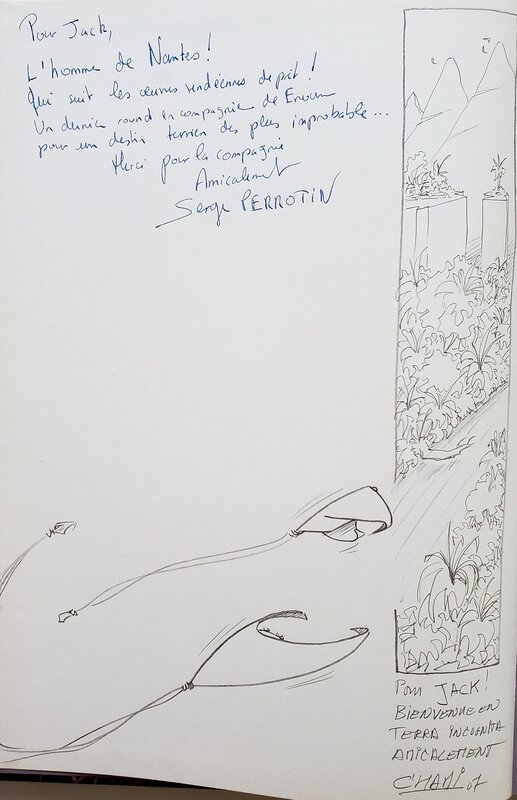 Pour Jack,
L'homme de Nantes !
Qui suit les œuvres vendéennes de prêt !
Un dernier round en compagnie de Erwan
pour un destin terrien des plus improbable...
Merci pour la compagnie
Amicalement
Serge PERROTIN
POUR JACK !
BIENVENUE EN
TERRA INCOGNITA
AMICALEMENT
CHAMI 07